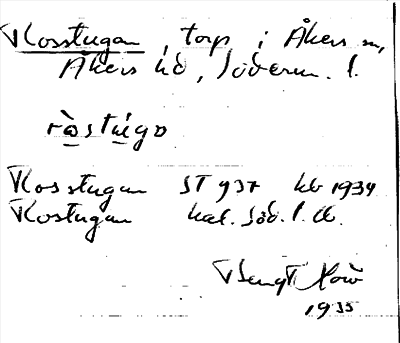 Rosstugan, torp i Åkers sn,
Åkers hd, Söderm. l.
ròstúgo
Rosstugan ST 937 kb 1934
Rostugan kal. Söd. l.
Bengt
1935